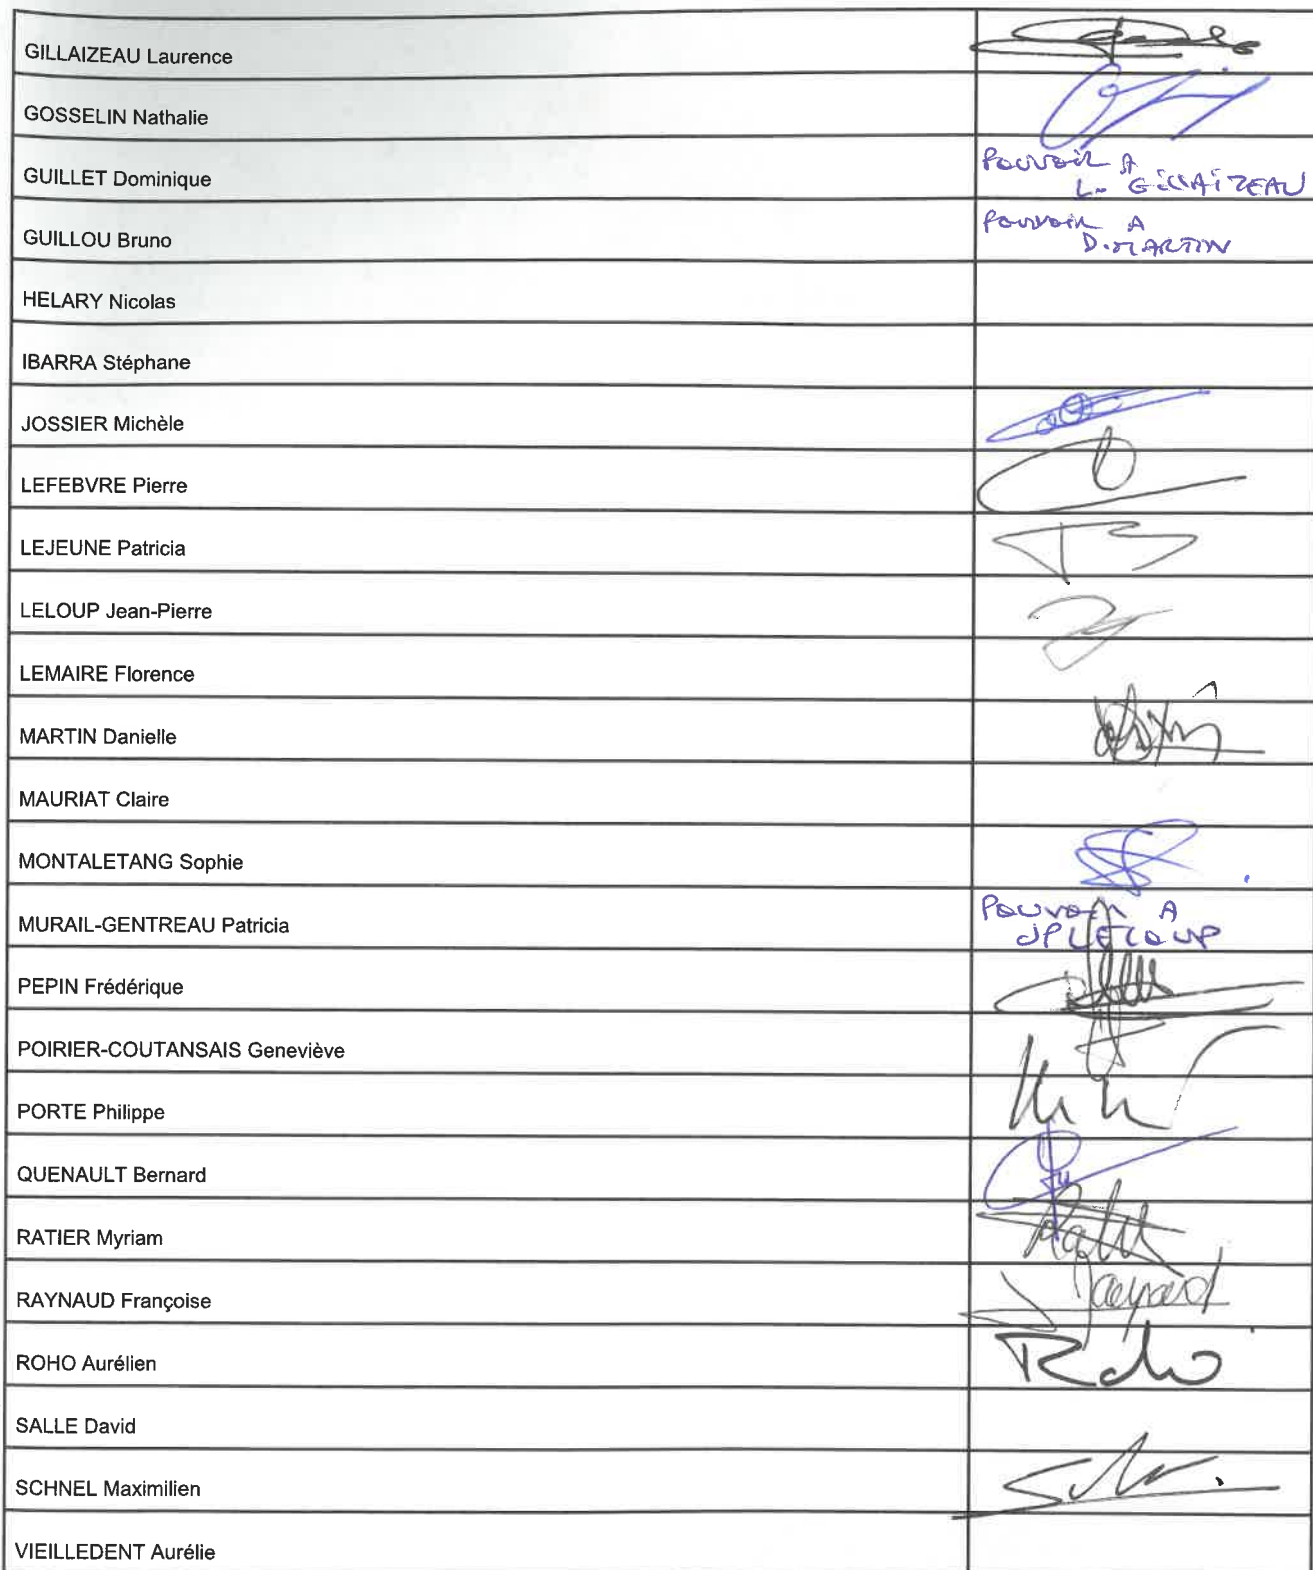 GILLAIZEAU Laurence
GOSSELIN Nathalie
GUILLET Dominique
Pouvoir A
L. GILLAIZEAU
GUILLOU Bruno
Pouvoir A
D. MARTIN
HELARY Nicolas
IBARRA Stéphane
JOSSIER Michèle
LEFEBVRE Pierre
LEJEUNE Patricia
LELOUP Jean-Pierre
LEMAIRE Florence
MARTIN Danielle
MAURIAT Claire
MONTALETANG Sophie
MURAIL-GENTREAU Patricia
Pouvoir A
JP LELOUP
PEPIN Frédérique
POIRIER-COUTANSAIS Geneviève
PORTE Philippe
QUENAULT Bernard
RATIER Myriam
RAYNAUD Françoise
ROHO Aurélien
Roho
SALLE David
SCHNEL Maximilien
VIEILLEDENT Aurélie